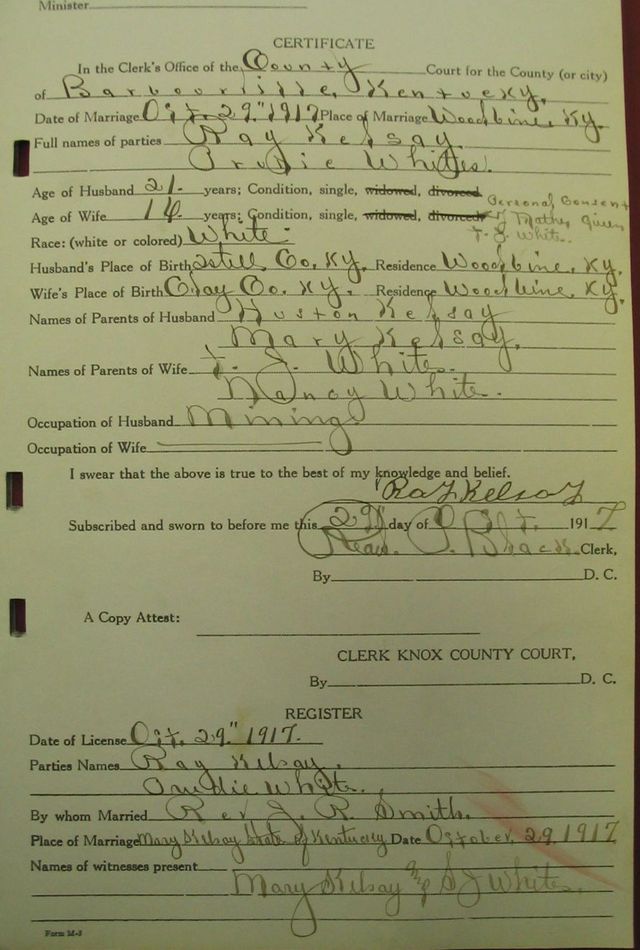 Minister
CERTIFICATE
In the Clerk's Office of the County Court for the County (or city)
of Barbourville, Kentucky.
Date of Marriage Oct. 29" 1917 Place of Marriage Woodbine, Ky.
Full names of parties Ray Kelsay.
White.
Age of Husband 21. years; Condition, single, widowed, divorced
Age of Wife years; Condition, single, widowed, divorced
Personal Consent
of Father Given
T. J. White.
Race: (white or colored) White.
Husband's Place of Birth Estill Co. Ky. Residence Woodbine, Ky.
Wife's Place of Birth Clay Co. Ky. Residence Woodbine, Ky.
Names of Parents of Husband Huston Kelsay
Mary Kelsay.
Names of Parents of Wife T. J. White.
Nancy White.
Occupation of Husband Mining
Occupation of Wife
I swear that the above is true to the best of my knowledge and belief.
Ray Kelsay
Subscribed and sworn to before me this 29 day of Oct. 1917
Read P. Black Clerk,
By D. C.
A Copy Attest:
CLERK KNOX COUNTY COURT,
By D. C.
REGISTER
Date of License Oct. 29" 1917.
Parties Names Ray Kelsay.
White.
By whom Married Rev. J. R. Smith.
Place of Marriage Mary Kelsay State of Kentucky Date October. 29 1917
Names of witnesses present
Mary Kelsay and S J White.
Form M-3